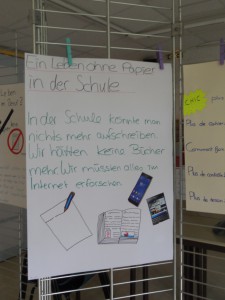 Ein Leben ohne Papier
in der Schule
In der Schule könnte man
nichts mehr aufschreiben.
Wir hätten keine Bücher
mehr. Wir müssen alles im
Internet erforschen.
Plus de
Plus de
Plus de